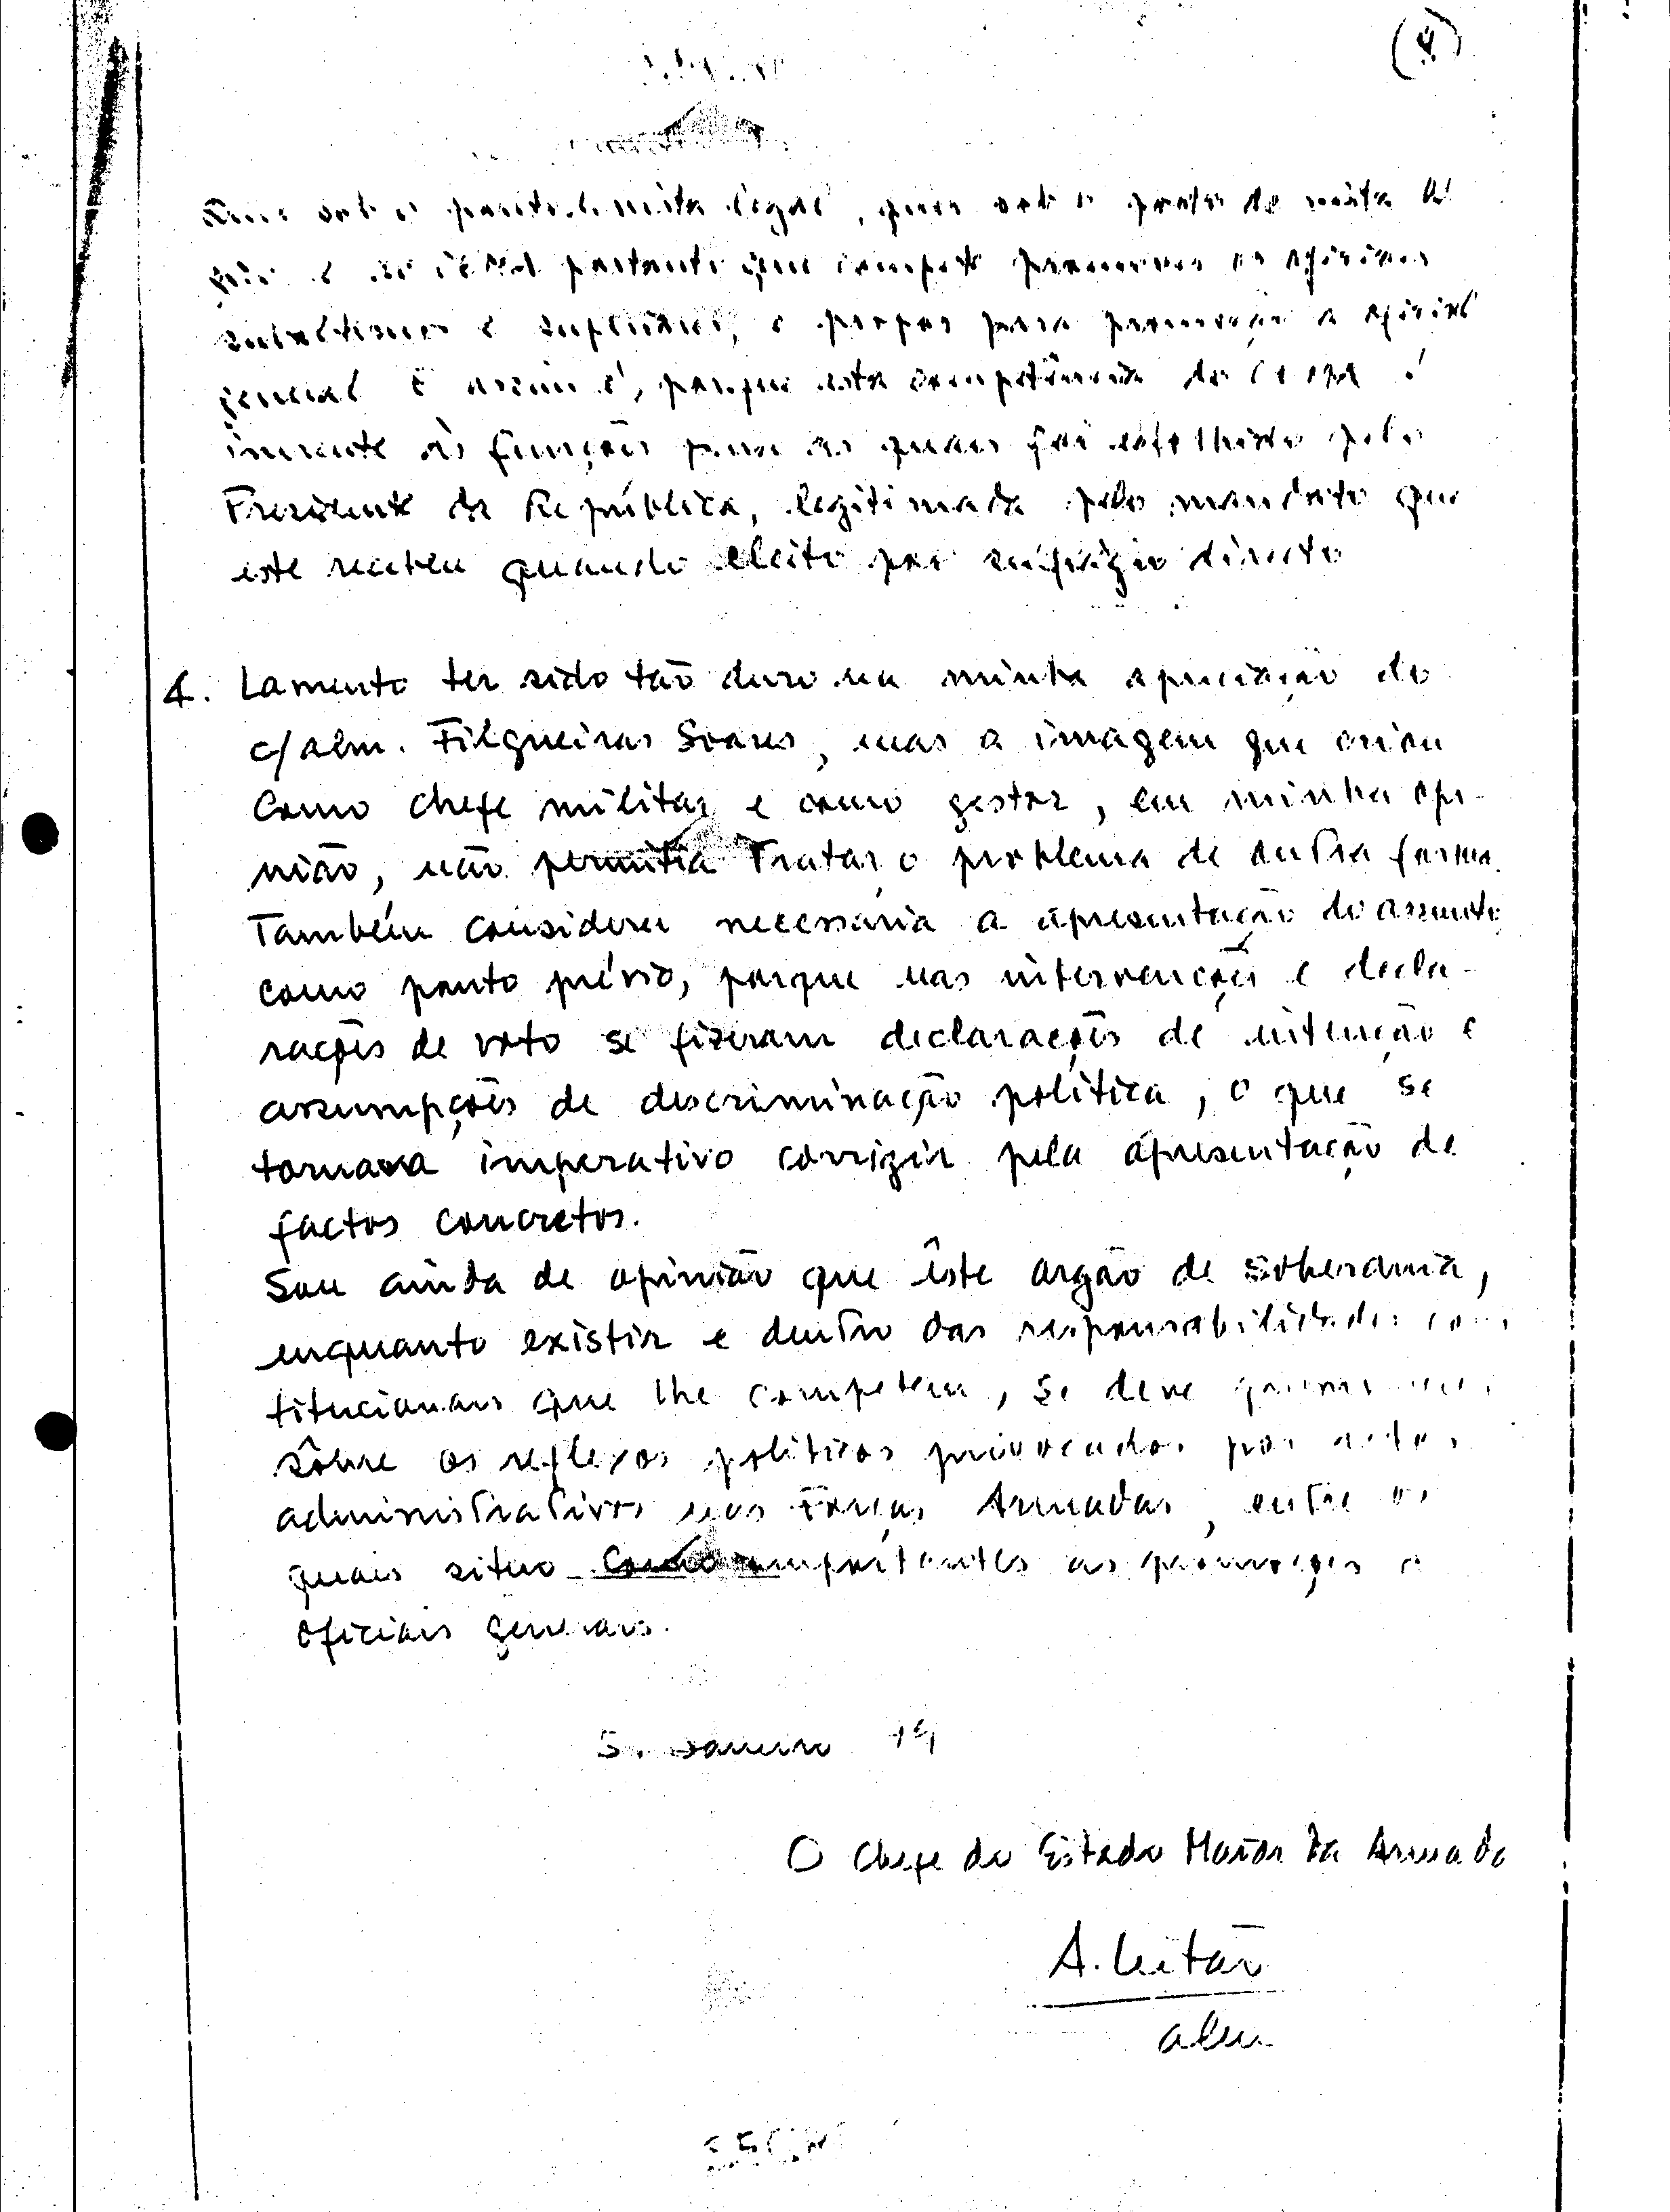 (4)
sob o ponto de vista legal, quer sob o ponto de vista
é ao CEMA portanto que compete promover os oficiais
subalternos e superiores, e propor para promoção a oficial
general E assim é, porque esta competência do CEMA é
inerente às funções para as quais foi escolhido pelo
Presidente da República, legitimada pelo mandato que
este recebeu quando eleito por sufrágio directo
4. Lamento ter sido tão duro na minha apreciação do
c/alm. Filgueiras Soares, mas a imagem que criou
como chefe militar e como gestor, em minha opi-
nião, não permitia tratar o problema de outra forma.
Também considerei necessária a apresentação do assunto
como ponto prévio, porque nas intervenções e decla-
rações de voto se fizeram declarações de intenção e
assumpções de descriminação política, o que se
tornava imperativo corrigir pela apresentação de
factos concretos.
Sou ainda de opinião que êste orgão de soberania,
enquanto existir e dentro das responsabilidades cons
titucionais que lhe competem, se deve
sôbre os reflexos políticos provocados por actos
administrativos nas Forças Armadas, entre os
quais situo como importantes as promoções a
oficiais generais.
5. Janeiro 79
O Chefe do Estado Maior da Armada
A. Leitão
alm.